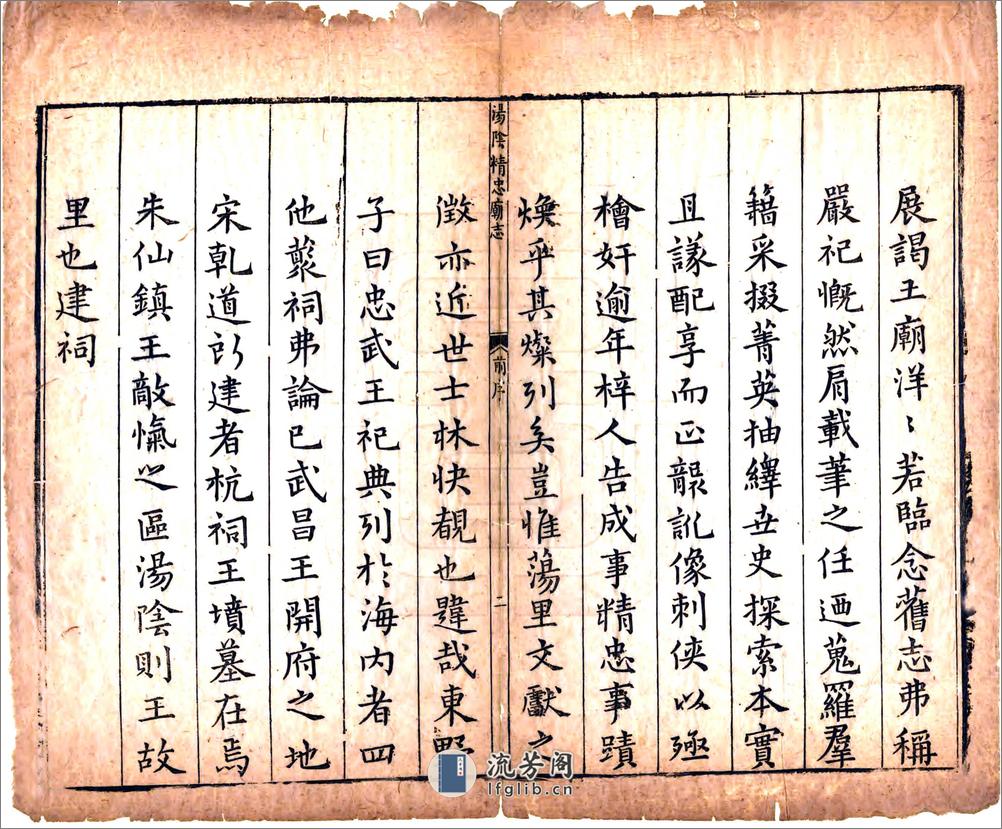 展謁王廟洋〻若臨念舊志弗稱
嚴祀慨然肩載筆之任迺蒐羅羣
籍采掇菁英抽繹世史探索本實
且諑配享而正龍訛像刺俠以殛
檜奸逾年梓人告成事精忠事蹟
煥乎其燦列矣豈惟蕩里文獻之
湯陰精忠廟志
前序
二
徵亦近世士林快覩也違哉東野
子曰忠武王祀典列於海內者四
他藂祠弗論已武昌王開府之地
宋乹道所建者杭祠王墳墓在焉
朱仙鎮王敵愾之區湯陰則王故
里也建祠
流芳阁
lfglib.cn